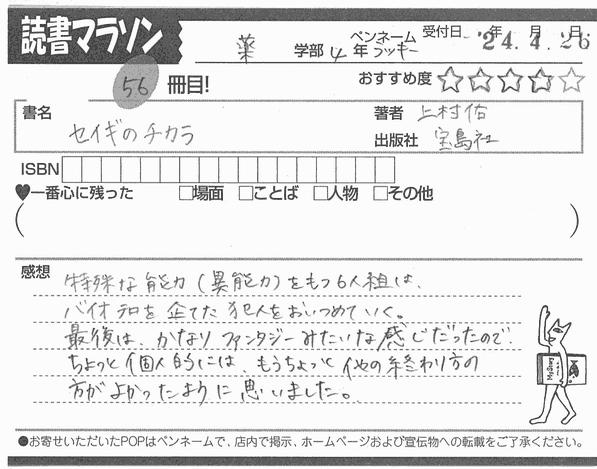 読書マラソン
薬 学部 4 年 ペンネーム フッキー 受付日 年 月 日 24.4.26
56 冊目! おすすめ度 ☆☆☆☆☆
書名 セイギのチカラ
著者 上村佑
出版社 宝島社
ISBN
♥一番心に残った □場面 □ことば □人物 □その他
( )
感想
特殊な能力(異能力)をもつ6人組は、
バイオテロを企てた犯人をおいつめていく。
最後は、かなりファンタジーみたいな感じだったので、
ちょっと個人的には、もうちょっと他の終わり方の
方がよかったように思いました。
●お寄せいただいたPOPはペンネームで、店内で掲示、ホームページおよび宣伝物への転載をご了承ください。